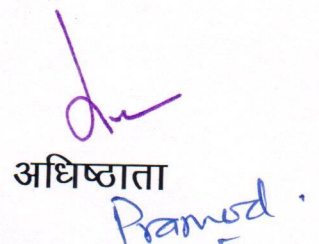 अधिष्ठाता
Pramod.